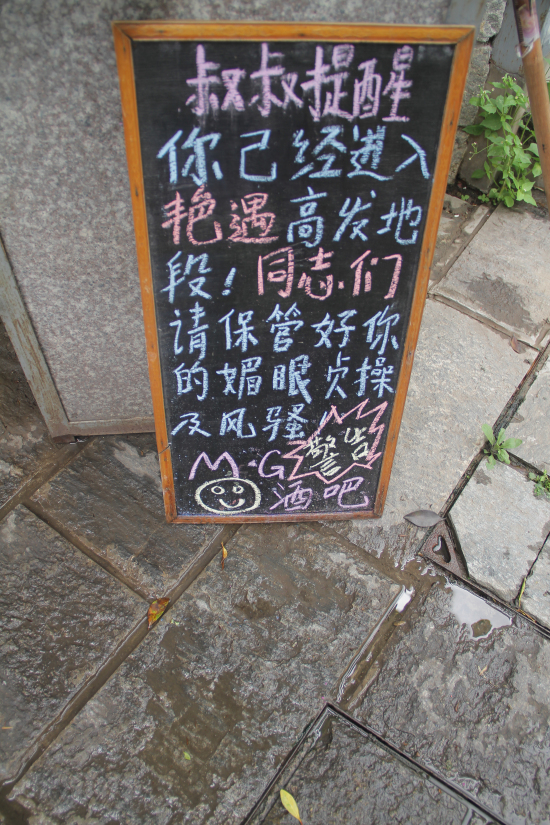 叔叔提醒
你己经进入
艳遇高发地
段!同志.们
请保管好你
的媚眼贞操
及风骚
警告
M·G
酒吧